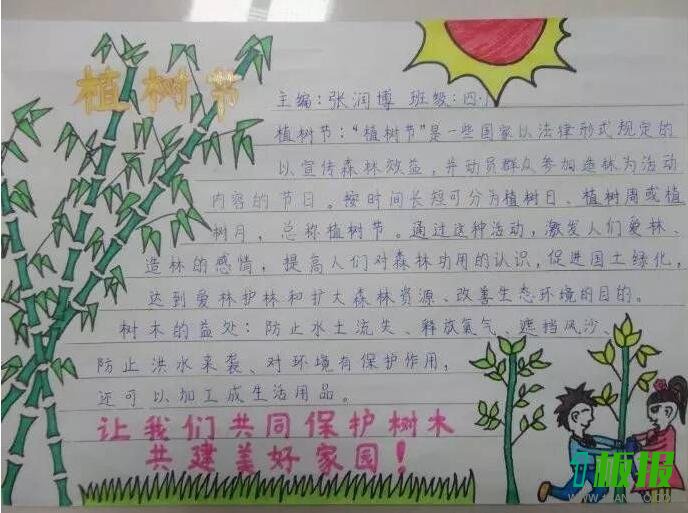 植树节
主编:张润博 班级:四.1
植树节:“植树节”是一些国家以法律形式规定的
以宣传森林效益,并动员群众参加造林为活动
内容的节日。按时间长短可分为植树日、植树周或植
树月,总称植树节。通过这种活动,激发人们爱林、
造林的感情,提高人们对森林功用的认识,促进国土绿化,
达到爱林护林和扩大森林资源、改善生态环境的目的。
树木的益处:防止水土流失、释放氧气、遮挡风沙、
防止洪水来袭、对环境有保护作用,
还可以加工成生活用品。
让我们共同保护树木
共建美好家园!
板报